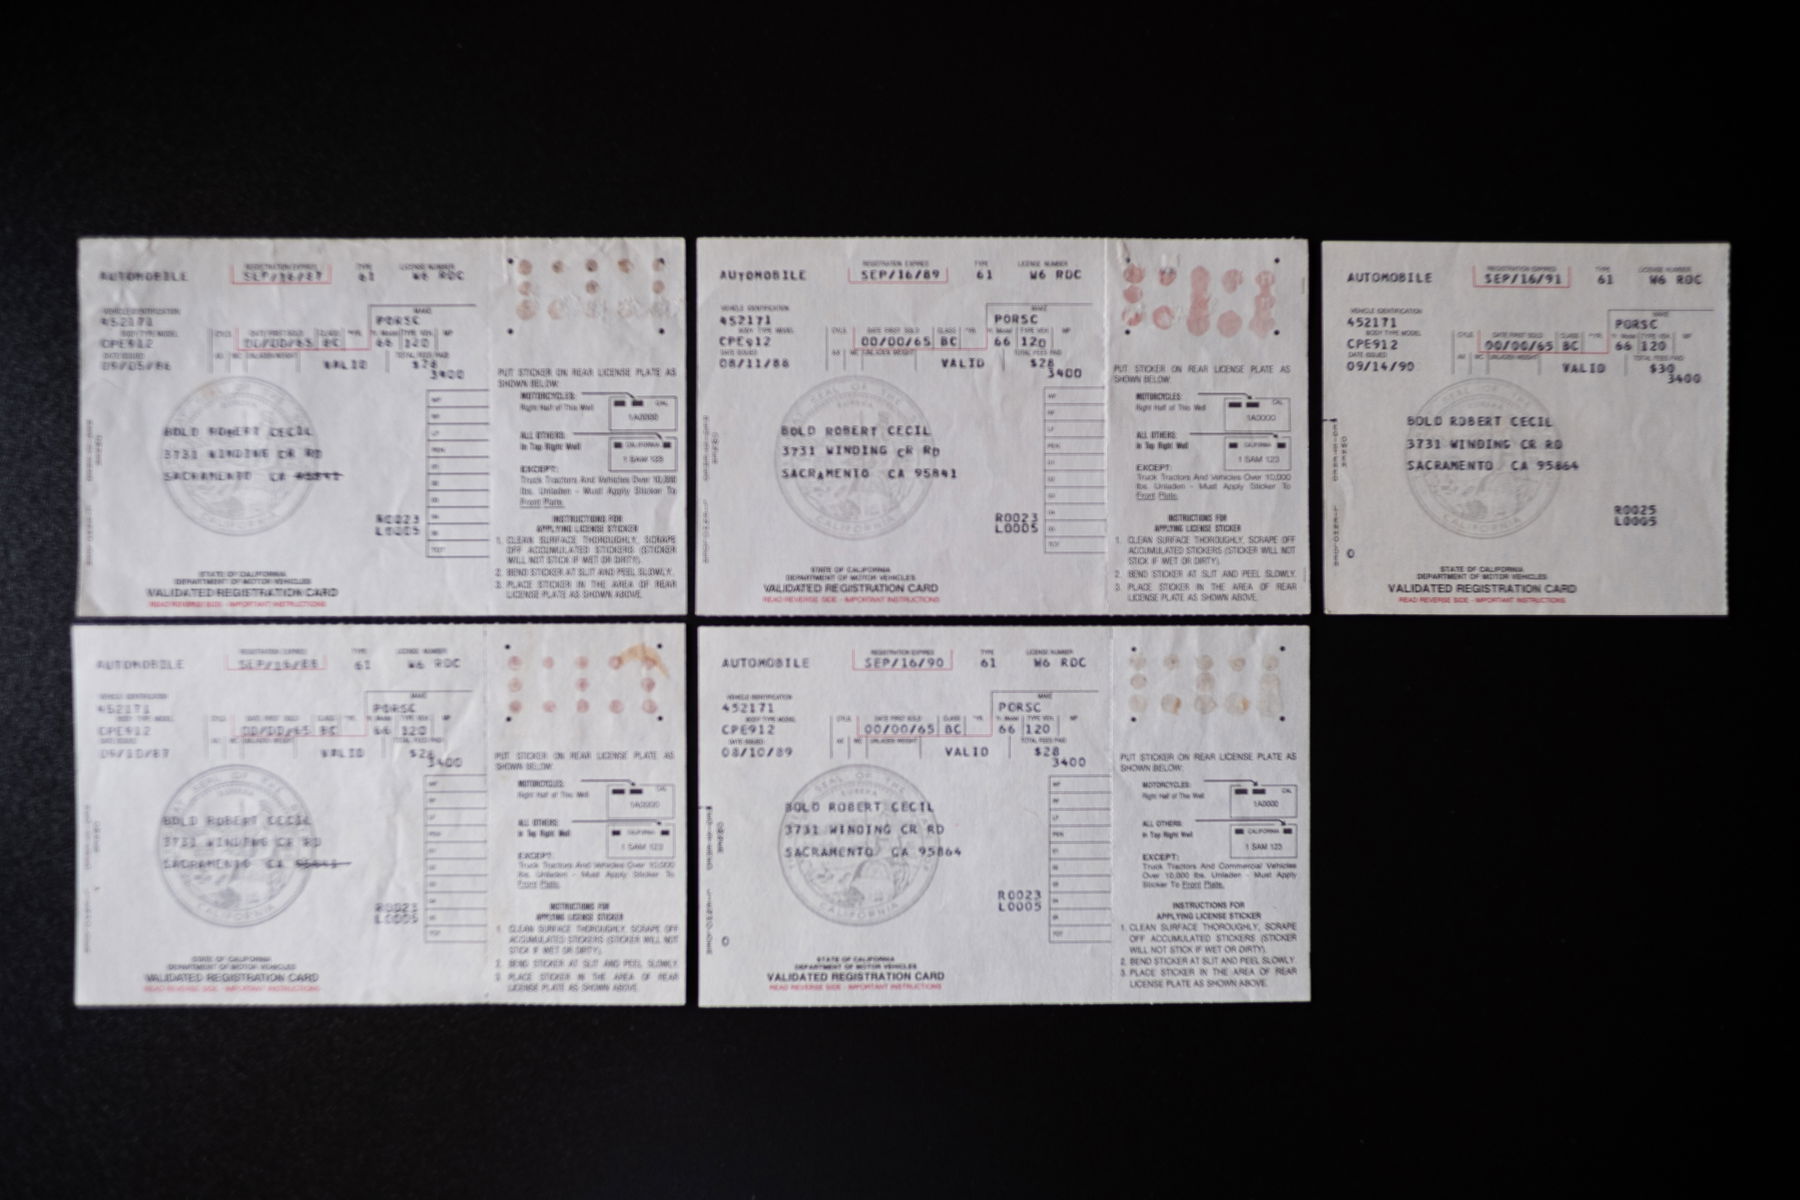 AUTOMOBILE
REGISTRATION EXPIRES
SEP/16/87
TYPE
61
LICENSE NUMBER
W6 RDC
VEHICLE IDENTIFICATION
452171
MAKE
PORSC
BODY TYPE MODEL
CPE912
DATE FIRST SOLD CLASS
00/00/65 BC
66 120
DATE ISSUED
09/05/86
VALID
TOTAL FEES PAID
$28
3400
BOLD ROBERT CECIL
3731 WINDING CR RD
SACRAMENTO CA 95841
R0023
L0005
STATE OF CALIFORNIA
DEPARTMENT OF MOTOR VEHICLES
VALIDATED REGISTRATION CARD
READ REVERSE SIDE - IMPORTANT INSTRUCTIONS
PUT STICKER ON REAR LICENSE PLATE AS
SHOWN BELOW:
MOTORCYCLES:
Right Half of This Well
1A0000
ALL OTHERS:
In Top Right Well
CALIFORNIA
1 SAM 123
EXCEPT:
Truck Tractors And Vehicles Over 10,000
lbs. Unladen - Must Apply Sticker To
Front Plate.
INSTRUCTIONS FOR
APPLYING LICENSE STICKER
1. CLEAN SURFACE THOROUGHLY, SCRAPE
OFF ACCUMULATED STICKERS (STICKER
WILL NOT STICK IF WET OR DIRTY).
2. BEND STICKER AT SLIT AND PEEL SLOWLY.
3. PLACE STICKER IN THE AREA OF REAR
LICENSE PLATE AS SHOWN ABOVE.
AUTOMOBILE
REGISTRATION EXPIRES
SEP/16/89
TYPE
61
LICENSE NUMBER
W6 RDC
VEHICLE IDENTIFICATION
452171
MAKE
PORSC
BODY TYPE MODEL
CPE912
DATE FIRST SOLD CLASS
00/00/65 BC
66 120
DATE ISSUED
08/11/88
VALID
TOTAL FEES PAID
$28
3400
BOLD ROBERT CECIL
3731 WINDING CR RD
SACRAMENTO CA 95841
R0023
L0005
STATE OF CALIFORNIA
DEPARTMENT OF MOTOR VEHICLES
VALIDATED REGISTRATION CARD
READ REVERSE SIDE - IMPORTANT INSTRUCTIONS
PUT STICKER ON REAR LICENSE PLATE AS
SHOWN BELOW:
MOTORCYCLES:
Right Half of This Well
CAL
1A0000
ALL OTHERS:
In Top Right Well
CALIFORNIA
1 SAM 123
EXCEPT:
Truck Tractors And Vehicles Over 10,000
lbs. Unladen - Must Apply Sticker To
Front Plate.
INSTRUCTIONS FOR
APPLYING LICENSE STICKER
1. CLEAN SURFACE THOROUGHLY, SCRAPE
OFF ACCUMULATED STICKERS (STICKER WILL NOT
STICK IF WET OR DIRTY).
2. BEND STICKER AT SLIT AND PEEL SLOWLY.
3. PLACE STICKER IN THE AREA OF REAR
LICENSE PLATE AS SHOWN ABOVE.
AUTOMOBILE
REGISTRATION EXPIRES
SEP/16/91
TYPE
61
LICENSE NUMBER
W6 RDC
VEHICLE IDENTIFICATION
452171
MAKE
PORSC
BODY TYPE MODEL
CPE912
DATE FIRST SOLD CLASS
00/00/65 BC
66 120
DATE ISSUED
09/14/90
VALID
TOTAL FEES PAID
$30
3400
BOLD ROBERT CECIL
3731 WINDING CR RD
SACRAMENTO CA 95864
R0025
L0005
O
STATE OF CALIFORNIA
DEPARTMENT OF MOTOR VEHICLES
VALIDATED REGISTRATION CARD
READ REVERSE SIDE - IMPORTANT INSTRUCTIONS
AUTOMOBILE
REGISTRATION EXPIRES
SEP/16/88
TYPE
61
LICENSE NUMBER
W6 RDC
VEHICLE IDENTIFICATION
452171
MAKE
PORSC
BODY TYPE MODEL
CPE912
DATE FIRST SOLD CLASS
00/00/65 BC
66 120
DATE ISSUED
09/10/87
VALID
TOTAL FEES PAID
$28
3400
BOLD ROBERT CECIL
3731 WINDING CR RD
SACRAMENTO CA 95841
R0023
L0005
STATE OF CALIFORNIA
DEPARTMENT OF MOTOR VEHICLES
VALIDATED REGISTRATION CARD
READ REVERSE SIDE - IMPORTANT INSTRUCTIONS
PUT STICKER ON REAR LICENSE PLATE AS
SHOWN BELOW:
MOTORCYCLES:
Right Half of This Well
CAL
1A0000
ALL OTHERS:
In Top Right Well
CALIFORNIA
1 SAM 123
EXCEPT:
Truck Tractors And Vehicles Over 10,000
lbs. Unladen - Must Apply Sticker To
Front Plate.
INSTRUCTIONS FOR
APPLYING LICENSE STICKER
1. CLEAN SURFACE THOROUGHLY, SCRAPE OFF
ACCUMULATED STICKERS (STICKER WILL NOT
STICK IF WET OR DIRTY).
2. BEND STICKER AT SLIT AND PEEL SLOWLY.
3. PLACE STICKER IN THE AREA OF REAR
LICENSE PLATE AS SHOWN ABOVE.
AUTOMOBILE
REGISTRATION EXPIRES
SEP/16/90
TYPE
61
LICENSE NUMBER
W6 RDC
VEHICLE IDENTIFICATION
452171
MAKE
PORSC
BODY TYPE MODEL
CPE912
DATE FIRST SOLD CLASS
00/00/65 BC
66 120
DATE ISSUED
08/10/89
VALID
TOTAL FEES PAID
$28
3400
BOLD ROBERT CECIL
3731 WINDING CR RD
SACRAMENTO CA 95864
R0023
L0005
O
STATE OF CALIFORNIA
DEPARTMENT OF MOTOR VEHICLES
VALIDATED REGISTRATION CARD
READ REVERSE SIDE - IMPORTANT INSTRUCTIONS
PUT STICKER ON REAR LICENSE PLATE AS
SHOWN BELOW:
MOTORCYCLES:
Right Half of This Well
CAL
1A0000
ALL OTHERS:
In Top Right Well
CALIFORNIA
1 SAM 123
EXCEPT:
Truck Tractors And Commercial Vehicles
Over 10,000 lbs. Unladen - Must Apply
Sticker To Front Plate.
INSTRUCTIONS FOR
APPLYING LICENSE STICKER
1. CLEAN SURFACE THOROUGHLY, SCRAPE
OFF ACCUMULATED STICKERS (STICKER
WILL NOT STICK IF WET OR DIRTY).
2. BEND STICKER AT SLIT AND PEEL SLOWLY.
3. PLACE STICKER IN THE AREA OF REAR
LICENSE PLATE AS SHOWN ABOVE.